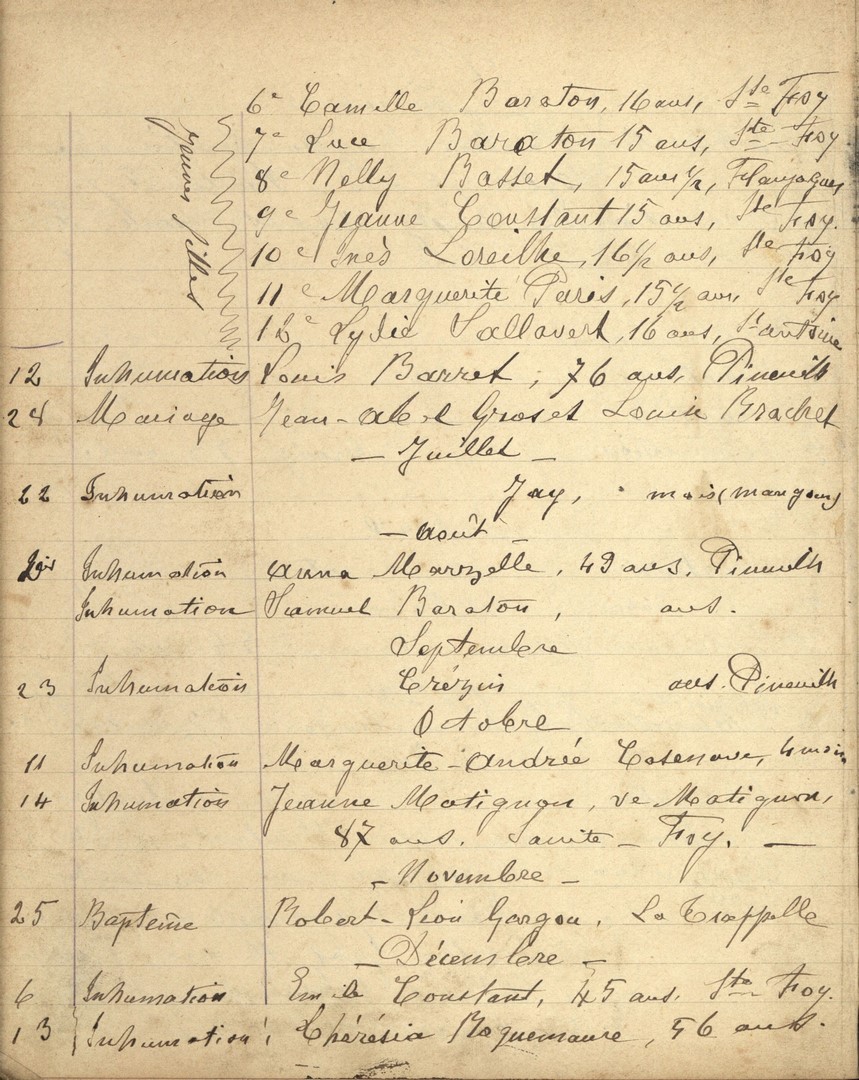 Jeunes filles
6e Camille Baraton, 16 ans, Ste Foy
7e Luce Baraton 15 ans, Ste Foy
8e Nelly Basset, 15 ans 1/2, Flaujagues
9e Jeanne Constant 15 ans, Ste Foy.
10e Inès Loreilhe, 16 1/2 ans, Ste Foy
11e Marguerite Paris, 15 1/2 ans, Ste Foy
12e Lydie Sallavert, 16 ans, St Antoine
12 Inhumation Louis Barret, 76 ans, Pineuilh
28 Mariage Jean-Abel Gros et Louise Brachet
- Juillet -
22 Inhumation Jay, mois
- Août -
Inhumation Anna Marzelle, 49 ans, Pineuilh
Inhumation Samuel Baraton, ans.
Septembre
23 Inhumation Crézin ans. Pineuilh
Octobre
11 Inhumation Marguerite-Andrée Casenave, 4 mois
14 Inhumation Jeanne Matignon, ve Matignon,
87 ans. Sainte-Foy. -
- Novembre -
25 Baptême Robert-Léon Gargou, La Trappelle
- Décembre -
6 Inhumation Emile Constant, 45 ans, Ste Foy.
13 Inhumation Thérésia Roquemaure, 56 ans.